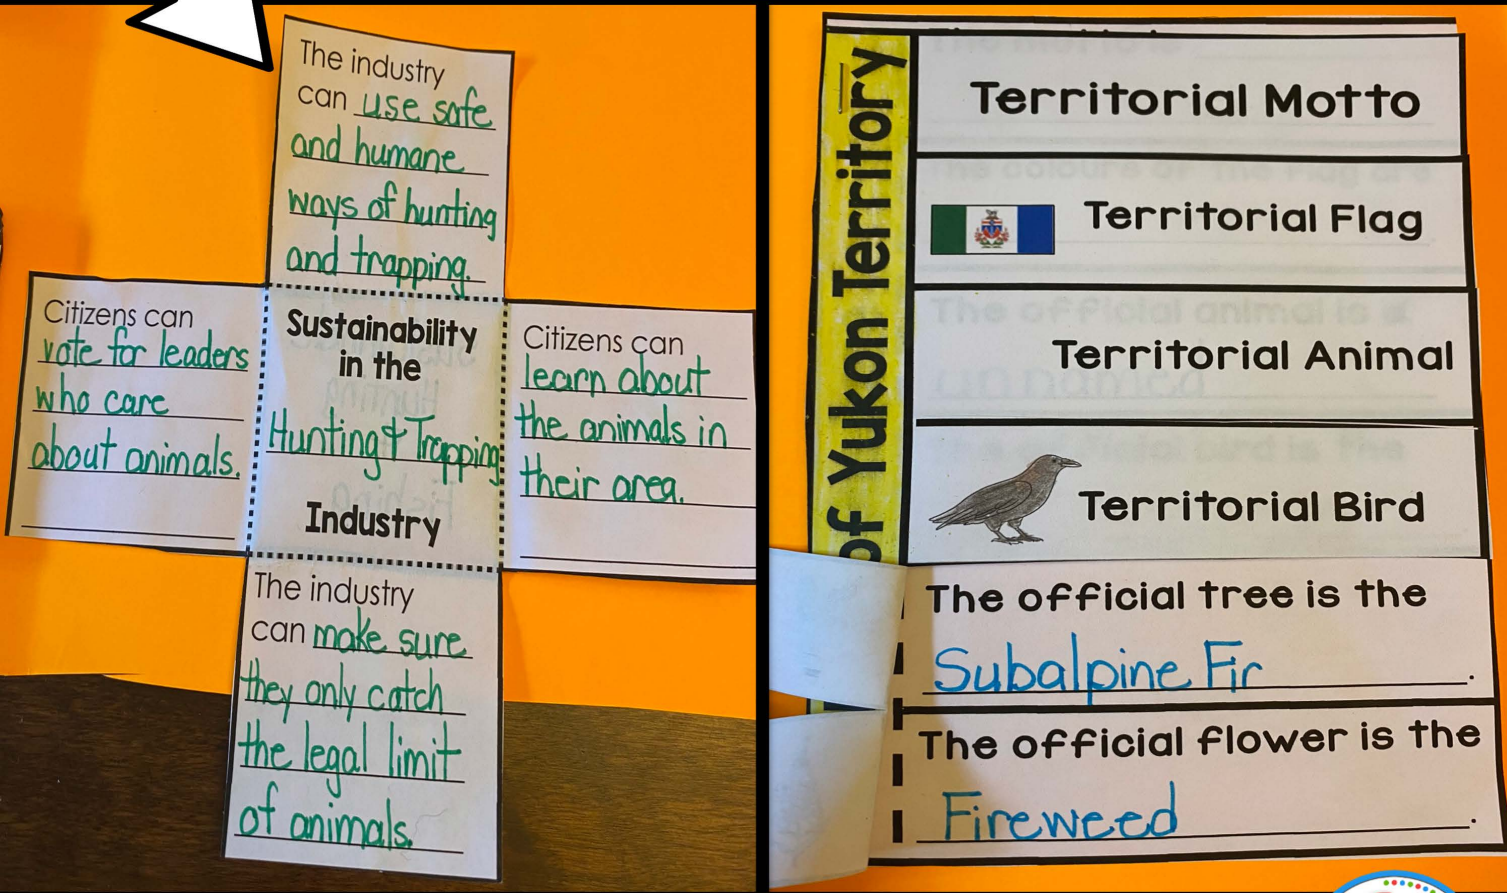 The industry
can use safe
and humane
ways of hunting
and trapping.
Citizens can
vote for leaders
who care
about animals.
Sustainability
in the
Hunting & Trapping
Industry
Citizens can
learn about
the animals in
their area.
The industry
can make sure
they only catch
the legal limit
of animals.
of Yukon Territory
Territorial Motto
The colours of the flag are
Territorial Flag
The official animal is a
unnamed
Territorial Animal
The official bird is the
Territorial Bird
The official tree is the
Subalpine Fir.
The official flower is the
Fireweed.